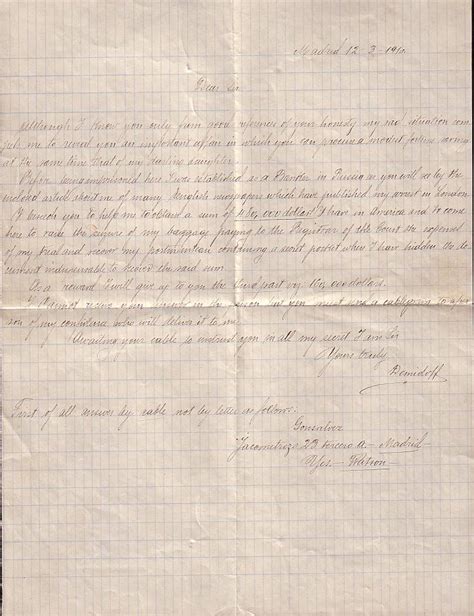 Madrid 12 3 1910
Dear Sir
Although I know you only from good references of your honesty my sad situation com
pels me to reveal you an important affair in which you can procure a modest fortune saving
at the same time that of my darling daughter.
Before being imprisoned here I was established as a Banker in Russia as you will see by the
inclosed article about me of many English newspapers which have published my arrest in London
I beseech you to help me to obtain a sum of dollars I have in America and to come
here to raise the seizure of my baggage paying to the Registrar of the Court the expenses
of my trial and recover my portmanteau containing a secret pocket where I have hidden the do
cument indispensable to recover the said sum.
As a reward I will give up to you the third part viz dollars.
I cannot receive your answer in the prison but you must send a cablegram to a per
son of my confidence who will deliver it to me.
Awaiting your cable to instruct you in all my secret I am Sir
Yours truly
Demidoff
First of all answer by cable not by letter as follows:
Gonzalvez
Jacometrezo 23 tercero Madrid
Yes. Watson